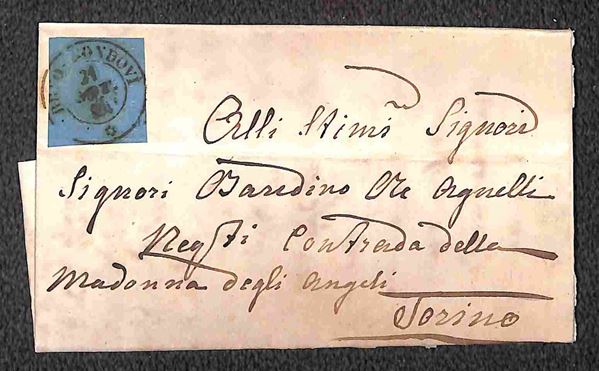 MONDOVI
21
NOV.
Alli Stimi Signori
Signori Baredino Re Agnelli
Negti Contrada della
Madonna degli Angeli
Torino